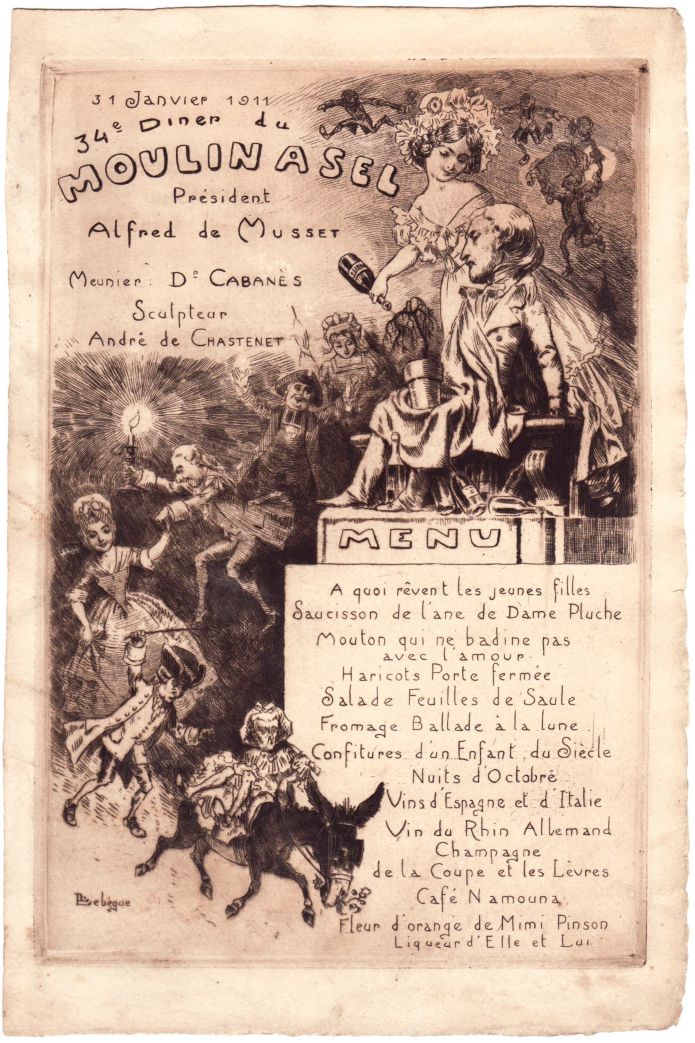 31 Janvier 1911
34e Diner du
MOULIN A SEL
Président
Alfred de MUSSET
Meunier: Dr CABANÈS
Sculpteur
André de CHASTENET
MENU
A quoi rêvent les jeunes filles
Saucisson de l'ane de Dame Pluche
Mouton qui ne badine pas
avec l'amour.
Haricots Porte fermée
Salade Feuilles de Saule
Fromage Ballade à la lune
Confitures d'un Enfant du Siècle
Nuits d'Octobre
Vins d'Espagne et d'Italie
Vin du Rhin Allemand
Champagne
de la Coupe et les Lèvres
Café Namouna
Fleur d'orange de Mimi Pinson
Liqueur d'Elle et Lui
Lebègue